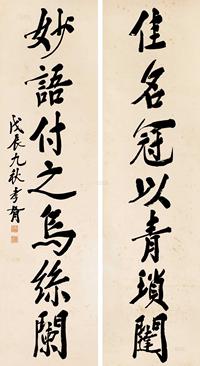 佳名冠以青瑣闥
妙語付之烏絲闌
戊辰九秋孝胥